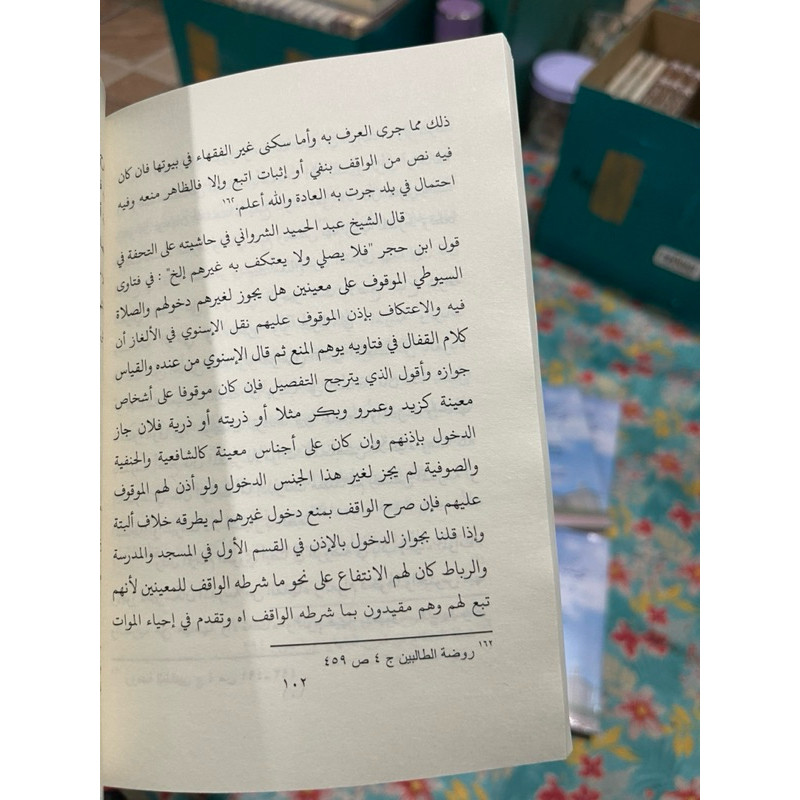 ذلك مما جرى العرف به وأما سكنى غير الفقهاء في بيوتها فان كان
فيه نص من الواقف بنفي أو إثبات اتبع وإلا فالظاهر منعه وفيه
احتمال في بلد جرت به العادة والله أعلم.١٦٢
قال الشيخ عبد الحميد الشرواني في حاشيته على التحفة في
قول ابن حجر "فلا يصلي ولا يعتكف به غيرهم إلخ" : في فتاوى
السيوطي الموقوف على معينين هل يجوز لغيرهم دخولهم والصلاة
فيه والاعتكاف بإذن الموقوف عليهم نقل الإسنوي في الألغاز أن
كلام القفال في فتاويه يوهم المنع ثم قال الإسنوي من عنده والقياس
جوازه وأقول الذي يترجح التفصيل فإن كان موقوفا على أشخاص
معينة كزيد وعمرو وبكر مثلا أو ذريته أو ذرية فلان جاز
الدخول بإذنهم وإن كان على أجناس معينة كالشافعية والحنفية
والصوفية لم يجز لغير هذا الجنس الدخول ولو أذن لهم الموقوف
عليهم فإن صرح الواقف بمنع دخول غيرهم لم يطرقه خلاف ألبتة
وإذا قلنا بجواز الدخول بالإذن في القسم الأول في المسجد والمدرسة
والرباط كان لهم الانتفاع على نحو ما شرطه الواقف للمعينين لأنهم
تبع لهم وهم مقيدون بما شرطه الواقف اه وتقدم في إحياء الموات
١٦٢ روضة الطالبين ج ٤ ص ٤٥٩
١٠٢